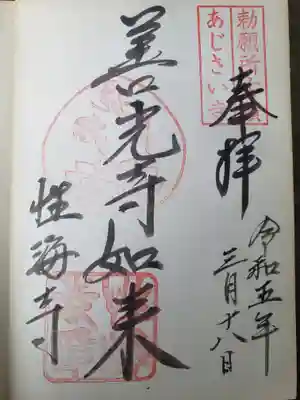 勅願所
あじさい寺
奉拝
令和五年
三月十八日
善光寺如来
性海寺